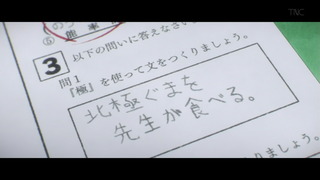 TNC
⑤ 能率
3 以下の問いに答えなさい
問1
『極』を使って文をつくりましょう。
北極ぐまを
先生が食べる。